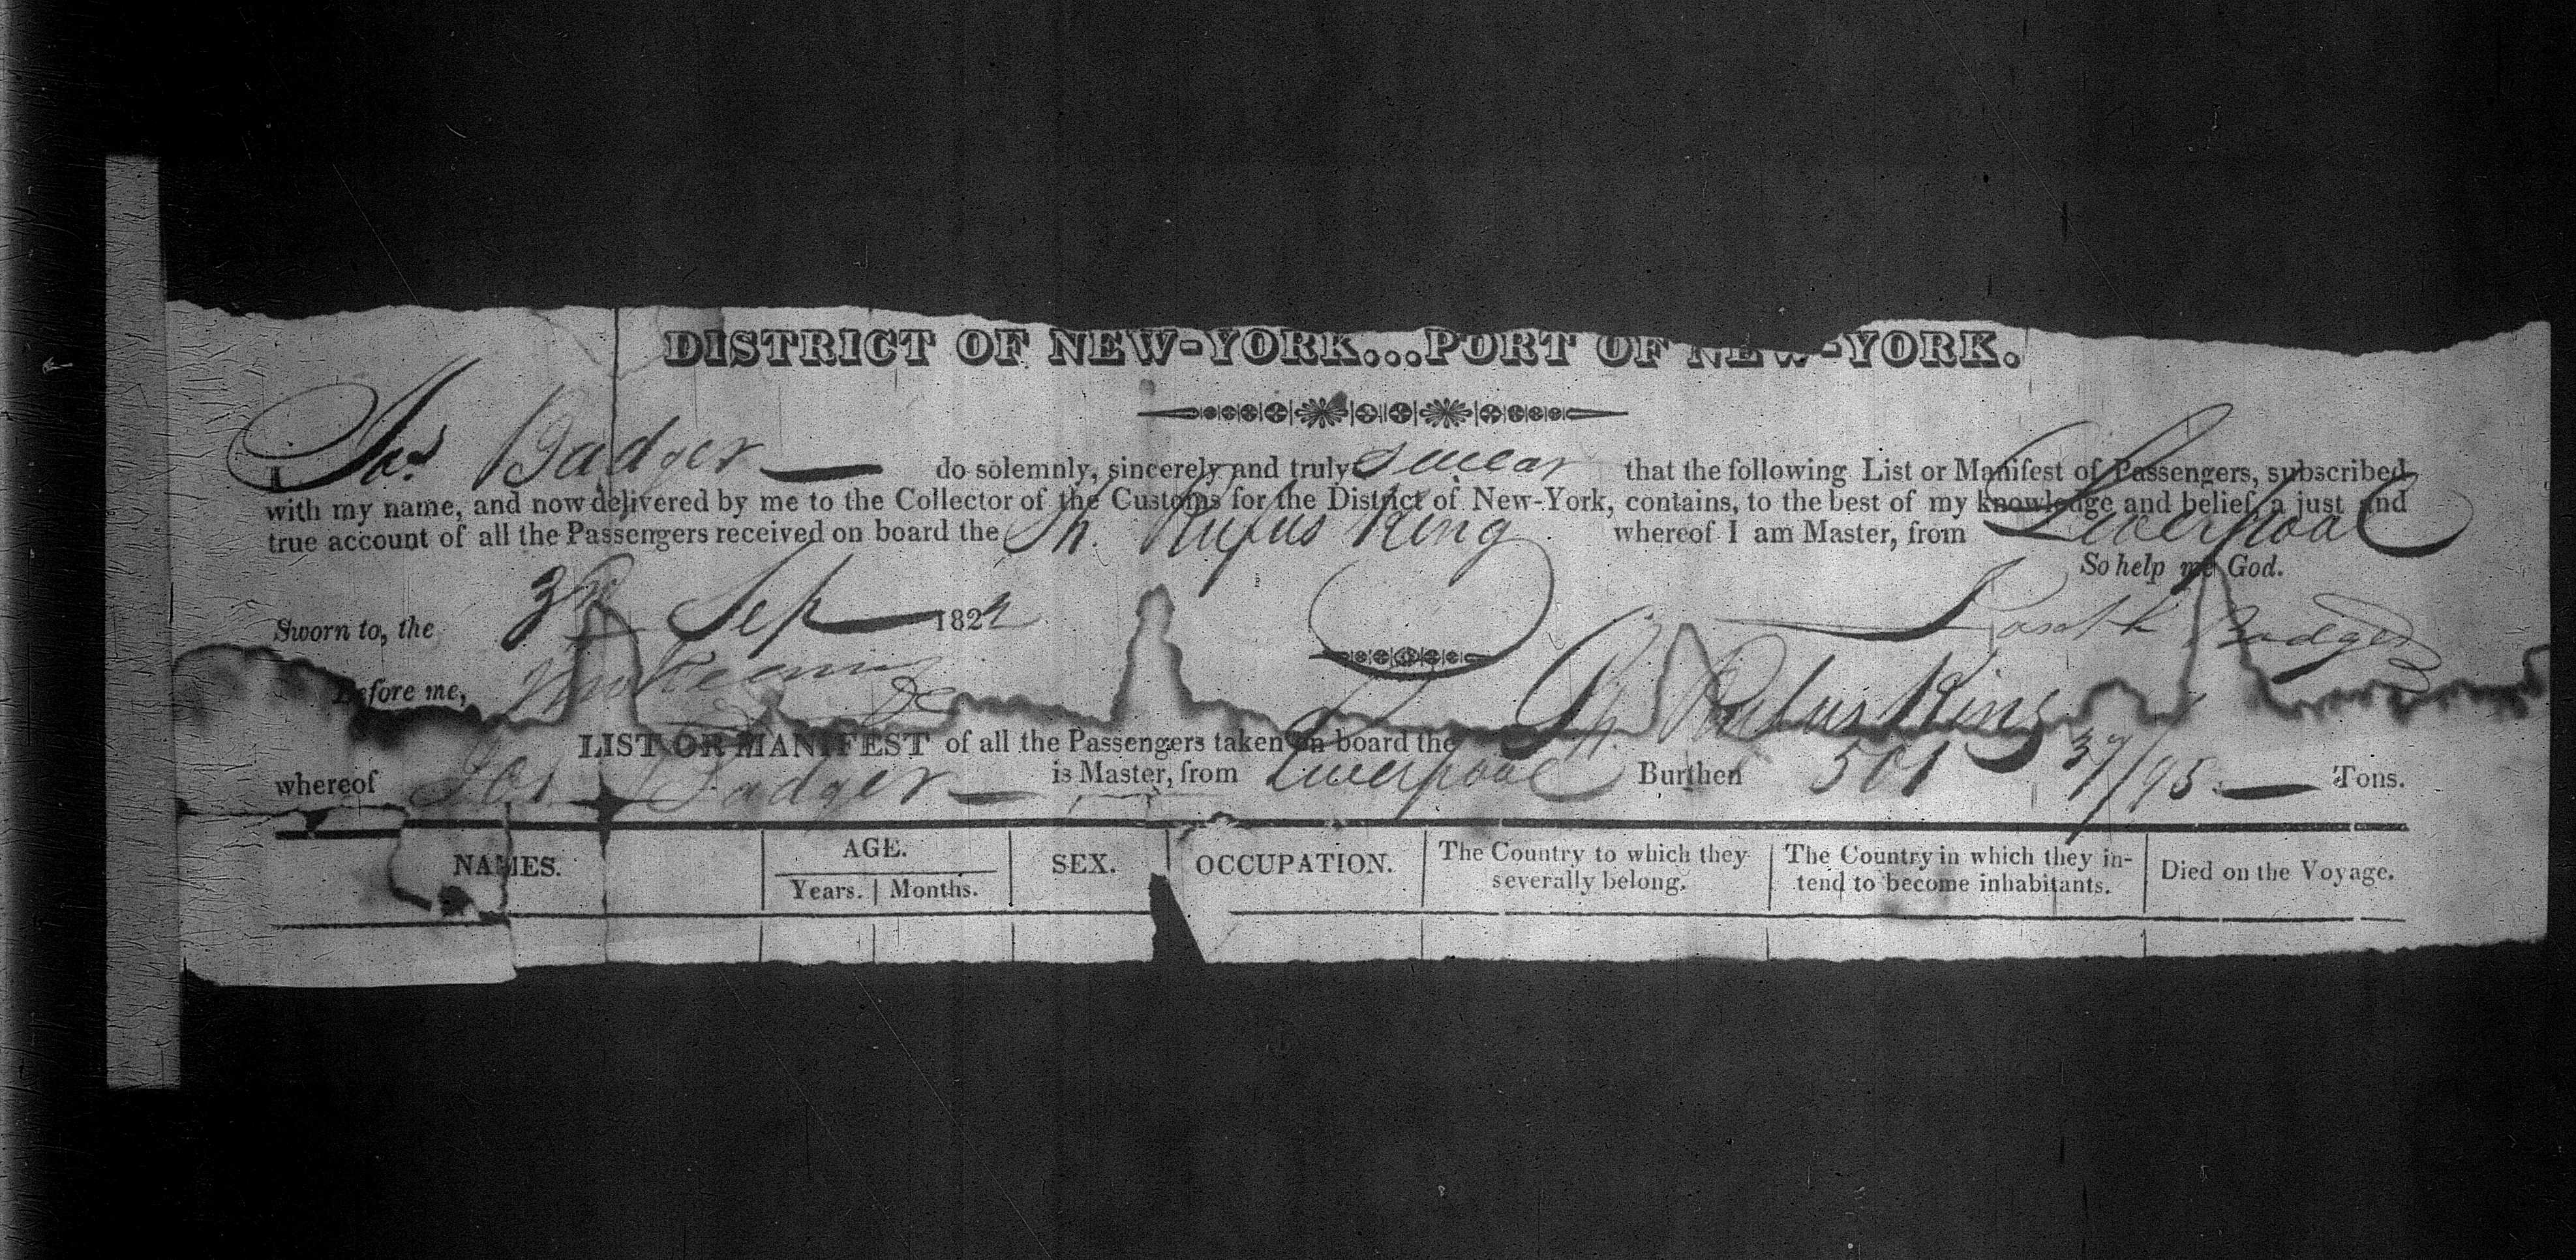 DISTRICT OF NEW-YORK...PORT OF NEW-YORK.
I Jos Badger do solemnly, sincerely and truly swear that the following List or Manifest of Passengers, subscribed
with my name, and now delivered by me to the Collector of the Customs for the District of New-York, contains, to the best of my knowledge and belief, a just and
true account of all the Passengers received on board the Sh. Rufus King whereof I am Master, from Liverpool
So help me God.
Sworn to, the 3rd Sep 182 Badger
Before me,
LIST OR MANIFEST of all the Passengers taken on board the Sh. Rufus King
whereof Jos Badger is Master, from Liverpool Burthen 501 37/95 Tons.
NAMES. AGE. Years. Months. SEX. OCCUPATION. The Country to which they severally belong. The Country in which they intend to become inhabitants. Died on the Voyage.